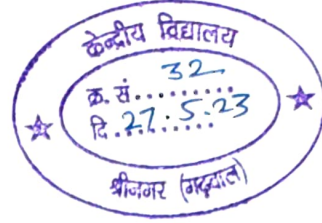 केन्द्रीय विद्यालय
क्र. सं. 32
दि. 27.5.23
श्रीनगर (गढ़वाल)